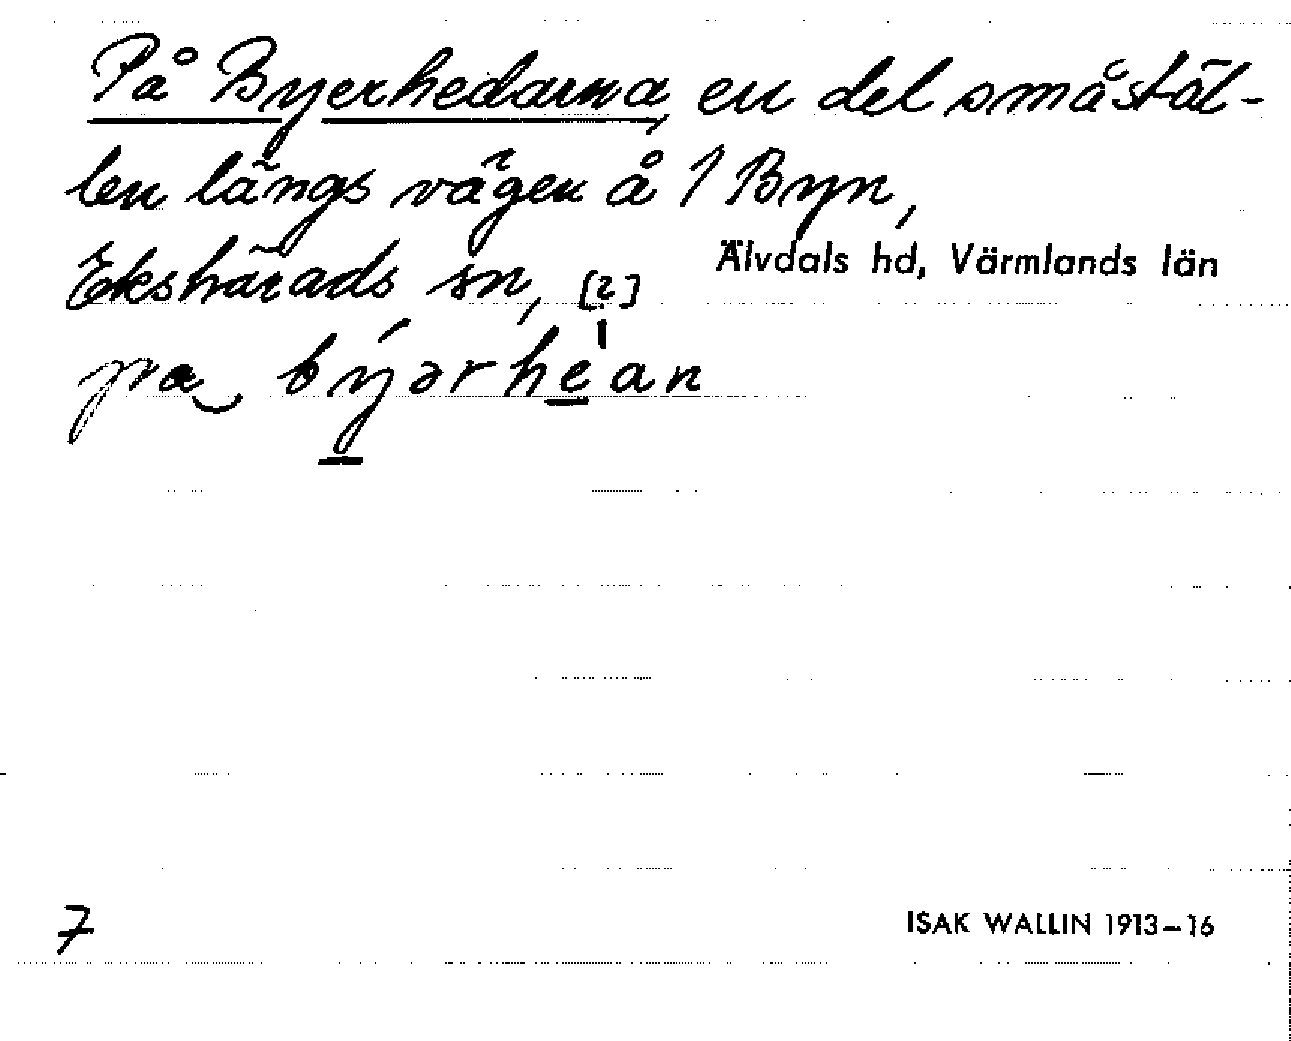 På Byerhedarna, en del småstäl-
len längs vägen å 1 Byn,
Ekshärads sn, [2] Älvdals hd, Värmlands län
pa býərhèan
7 ISAK WALLIN 1913–16